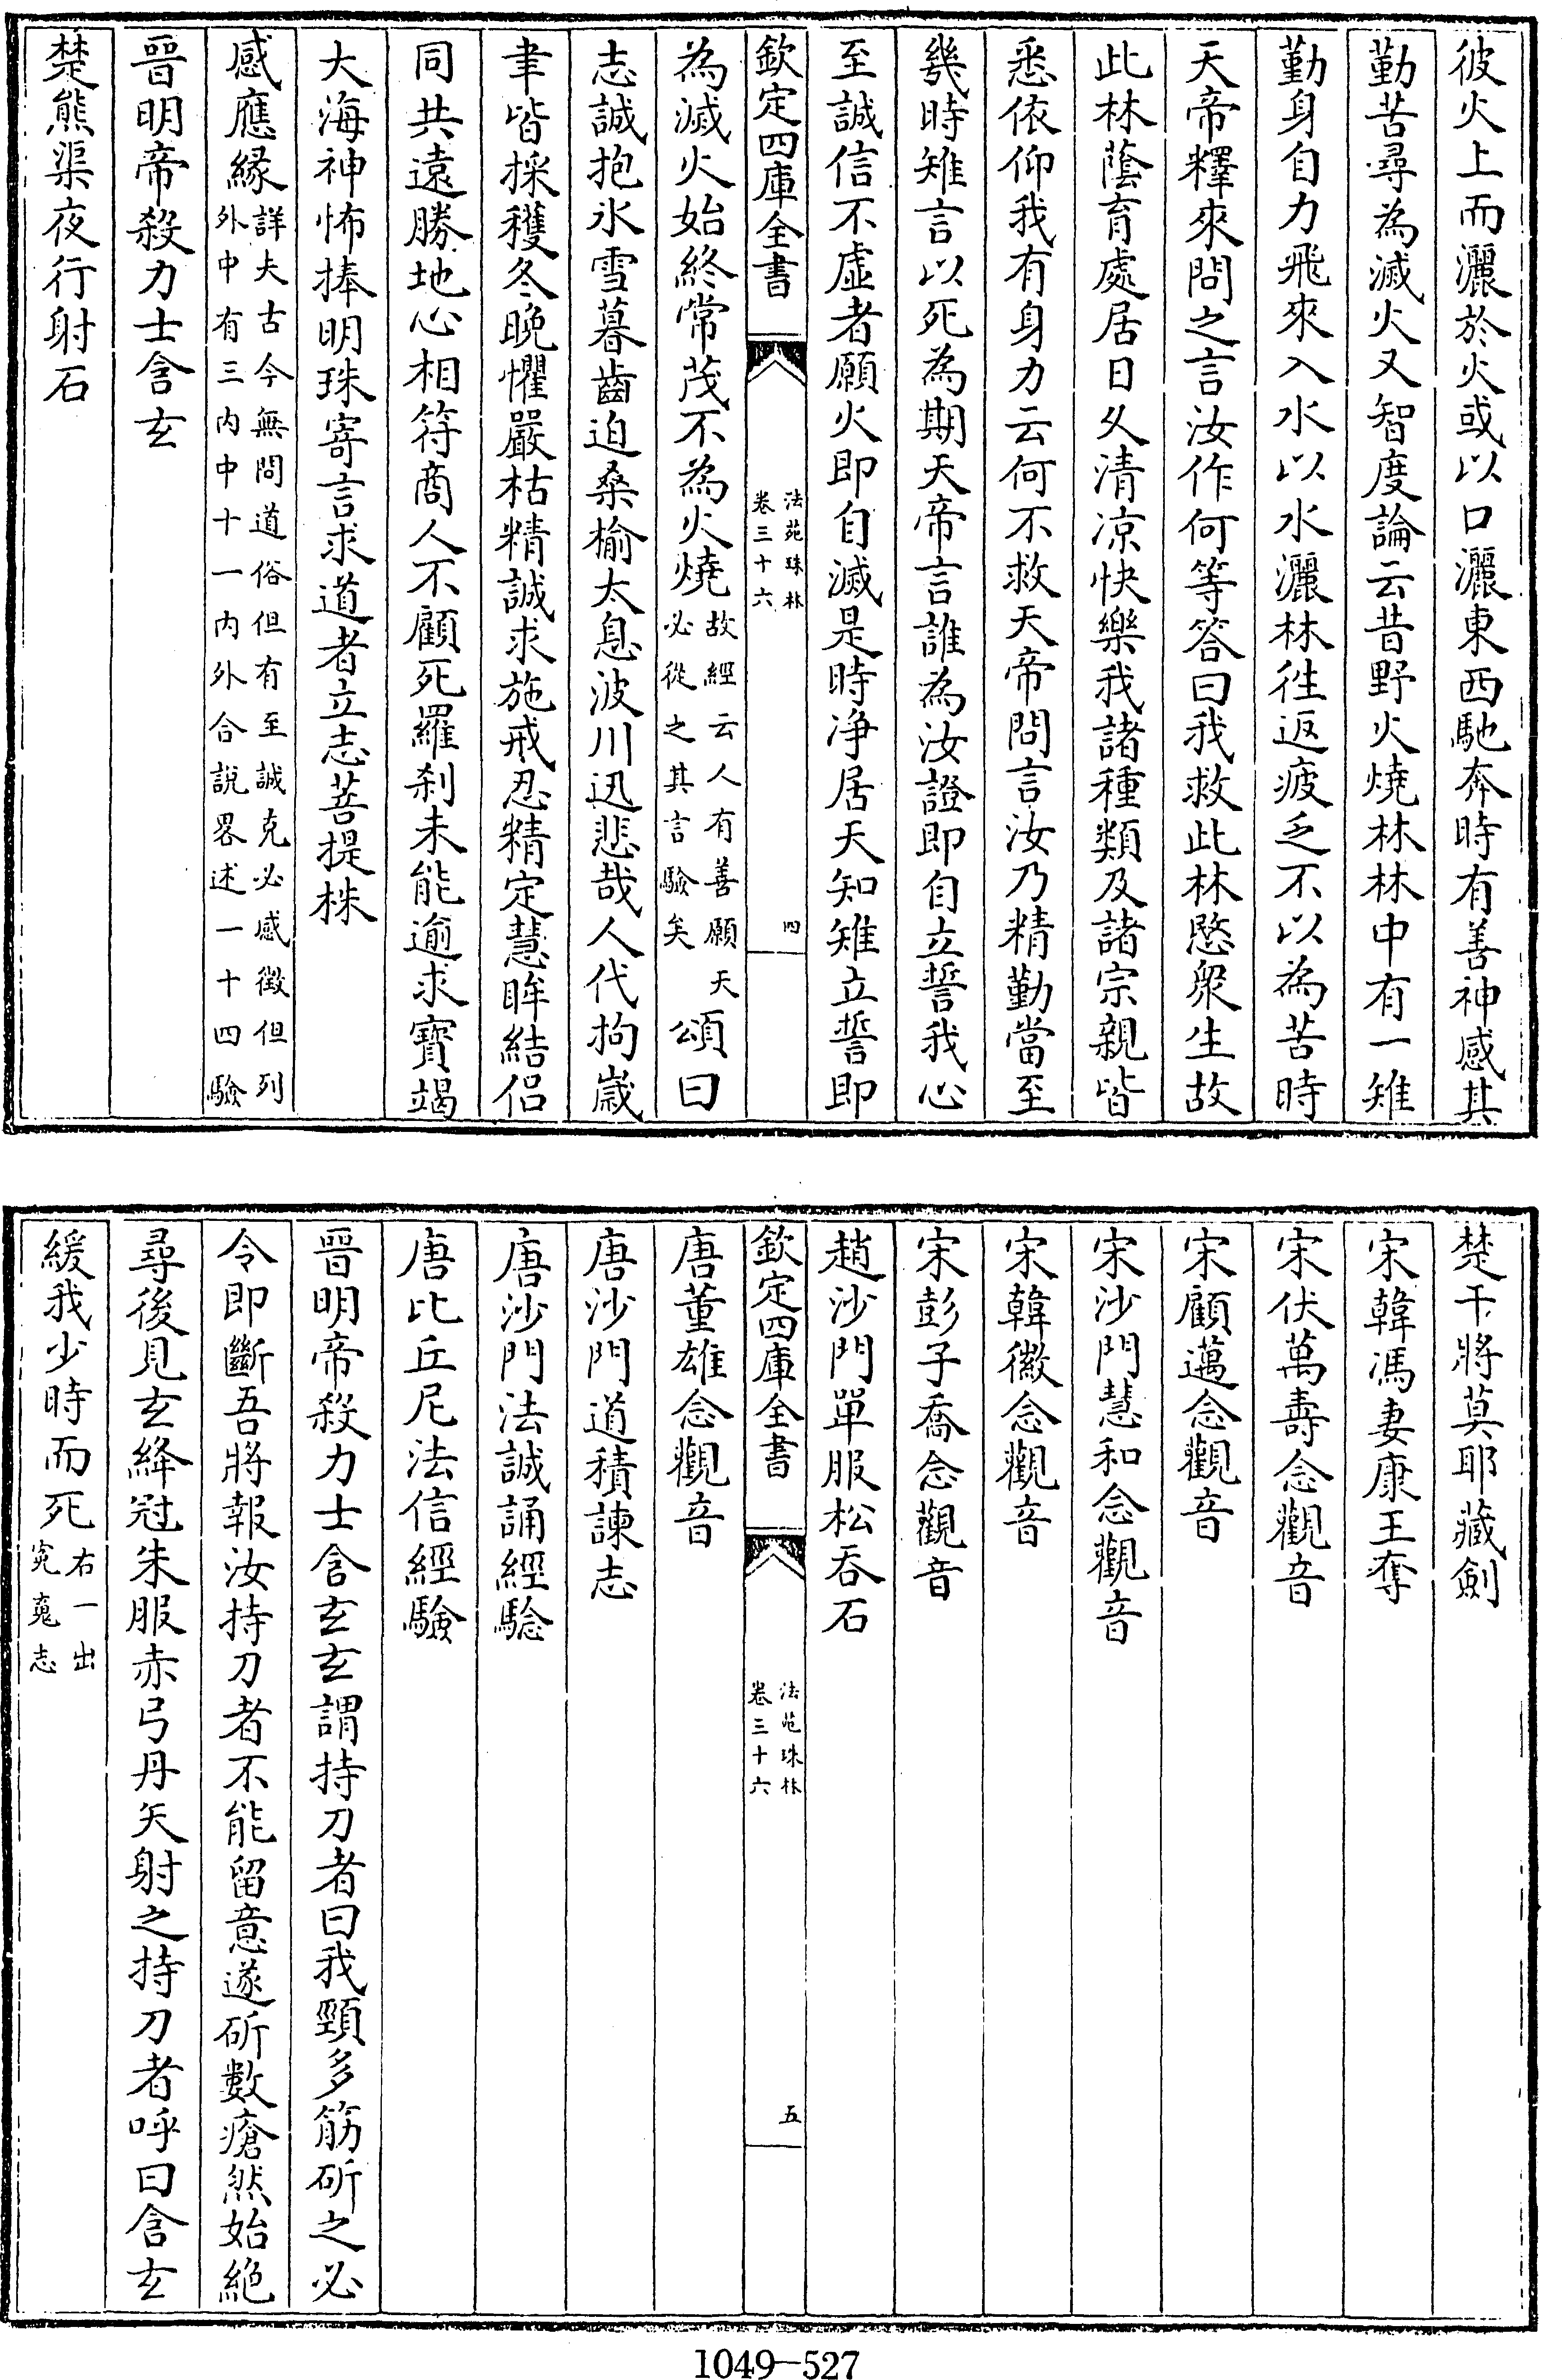 彼火上而灑於火或以口灑東西馳奔時有善神感其
勤苦尋為滅火又智度論云昔野火燒林林中有一雉
勤身自力飛來入水以水灑林往返疲乏不以為苦時
天帝釋來問之言汝作何等答曰我救此林愍衆生故
此林蔭育處居日久清凉快樂我諸種類及諸宗親皆
悉依仰我有身力云何不救天帝問言汝乃精勤當至
幾時雉言以死為期天帝言誰為汝證即自立誓我心
至誠信不虛者願火即自滅是時净居天知雉立誓即
欽定四庫全書 法苑珠林 卷三十六 四
為滅火始終常茂不為火燒故經云人有善願天必從之其言驗矣 頌曰
志誠抱氷雪暮齒迫桑榆太息波川迅悲哉人代拘歲
聿皆採穫冬晚懼嚴枯精誠求施戒忍精定慧眸結侣
同共遠勝地心相符商人不顧死羅刹未能逾求寶竭
大海神怖捧明珠寄言求道者立志菩提株
感應緣詳夫古今無問道俗但有至誠克必感徵但列外中有三内中十一内外合說畧述一十四驗
晉明帝殺力士含玄
楚熊渠夜行射石
楚干將莫耶藏劍
宋韓馮妻康王奪
宋伏萬壽念觀音
宋顧邁念觀音
宋沙門慧和念觀音
宋韓徽念觀音
宋彭子喬念觀音
趙沙門單服松吞石
欽定四庫全書 法苑珠林 卷三十六 五
唐董雄念觀音
唐沙門道積諫志
唐沙門法誠誦經驗
唐比丘尼法信經驗
晉明帝殺力士含玄玄謂持刀者曰我頸多筋斫之必
令即斷吾將報汝持刀者不能留意遂斫數瘡然始絶
尋後見玄絳冠朱服赤弓丹矢射之持刀者呼曰含玄
緩我少時而死右一出寃䰟志
1049-527